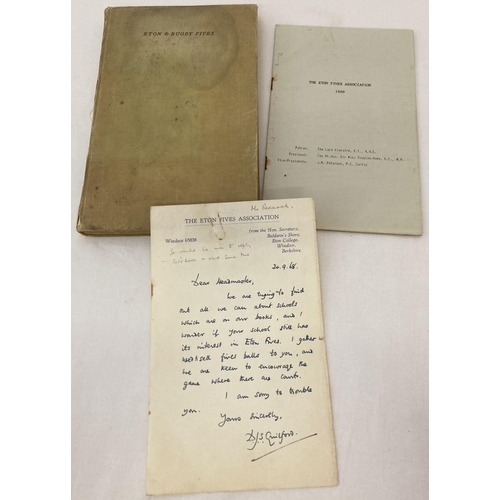 ETON & RUGBY FIVES
THE ETON FIVES ASSOCIATION
Patron: The Lord
President: Sir Alec Douglas-Home, K.T., M.P.
Vice-Presidents:
Mr
THE ETON FIVES ASSOCIATION
from the Hon. Secretary,
Baldwin's Shore,
Eton College,
Windsor,
Berkshire.
Windsor
20.9.68.
Dear Headmaster,
We are trying to find
out all we can about schools
which are on our books, and I
wonder if your school still has
its interest in Eton Fives. I gather
sell fives balls to you, and
we are keen to encourage the
game where there are courts.
I am sorry to trouble
you.
Yours sincerely,
D.J.S. Guilford.